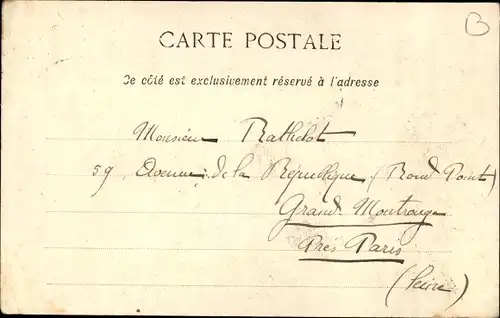 B
CARTE POSTALE
Ce côté est exclusivement réservé à l'adresse
Monsieur Rathelot
59, Avenue de la République (Rond Point)
Grand Montrouge
Près Paris
(Seine)